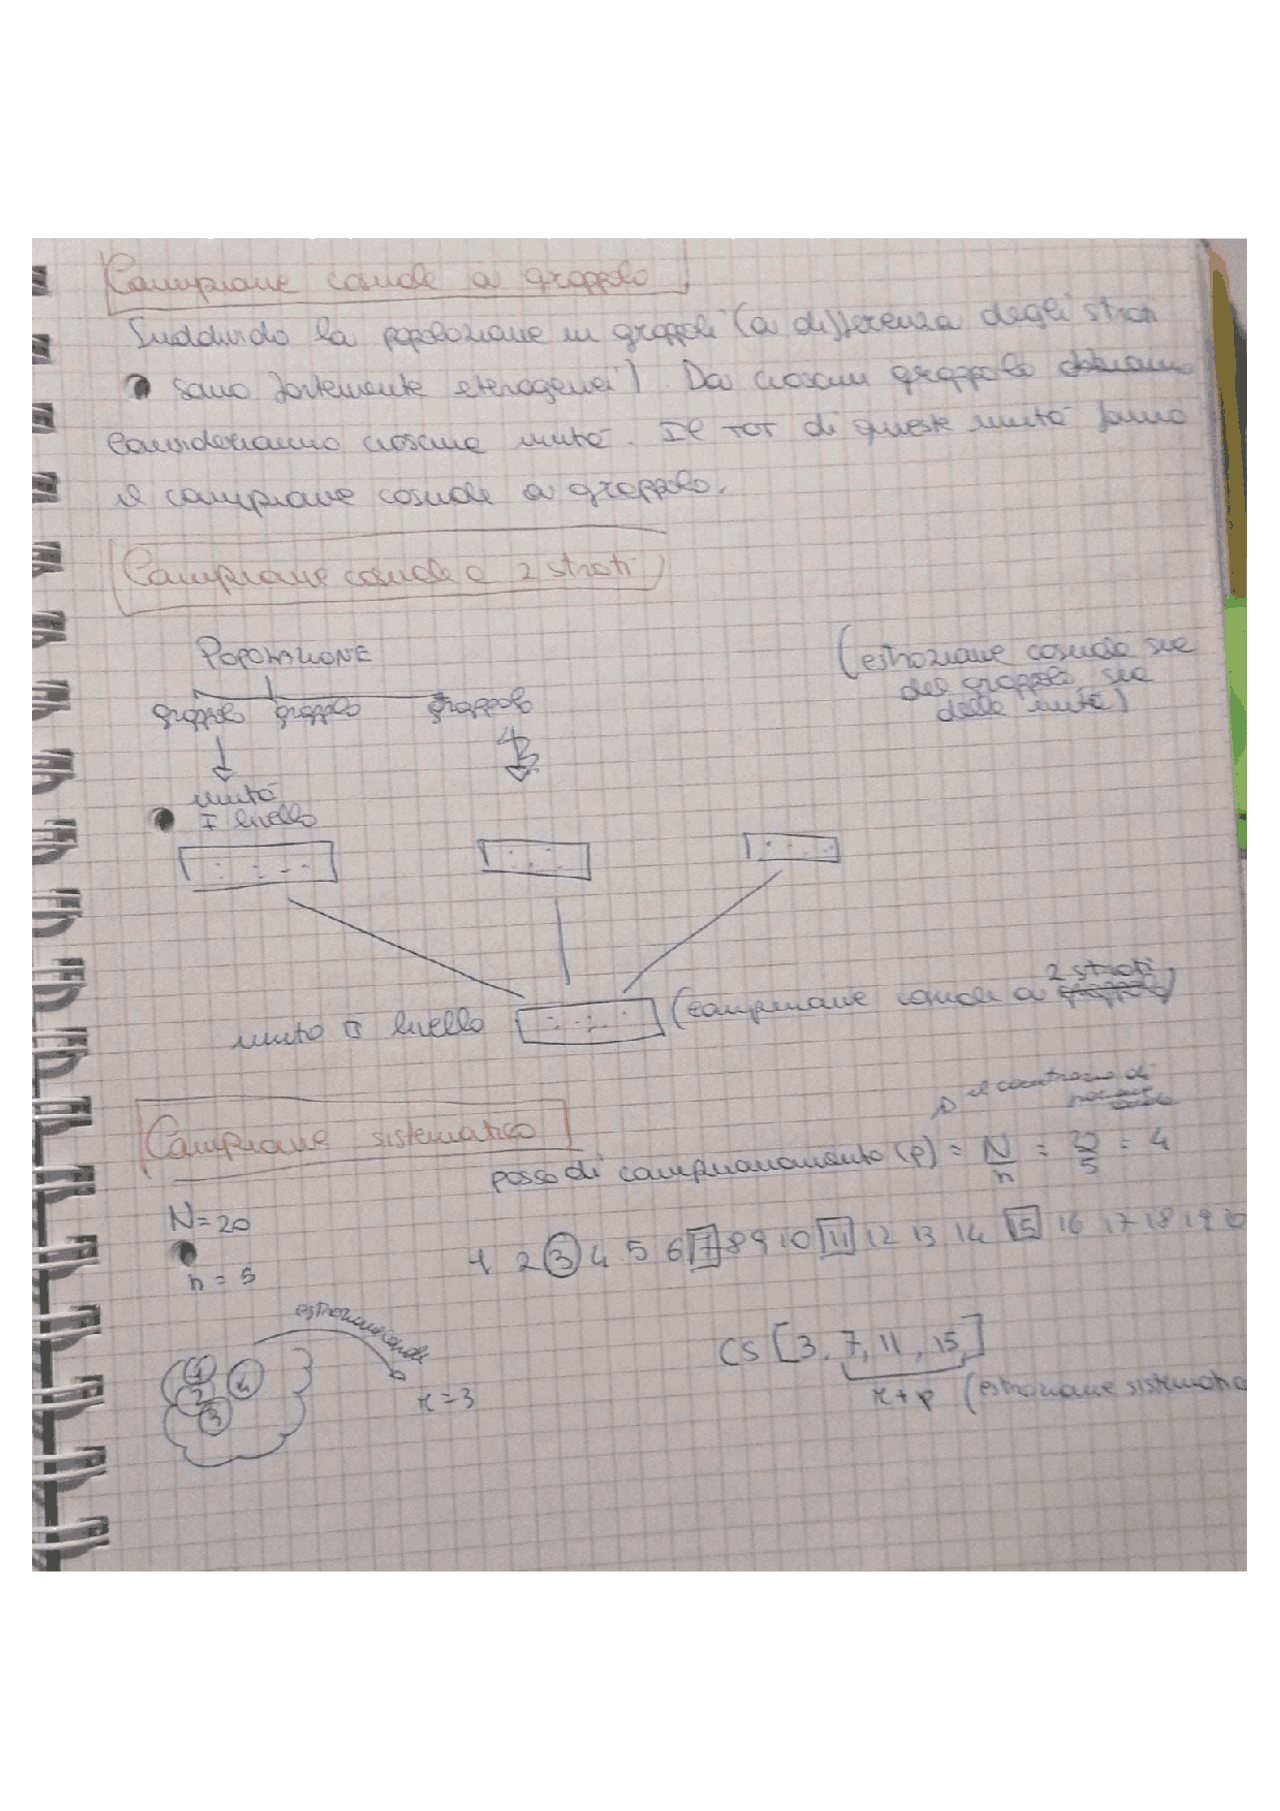 Campione casuale a grappolo
Suddivido la popolazione in grappoli (a differenza degli strati
sono fortemente eterogenei). Da ciascun grappolo
consideriamo ciascuna unità. Il tot di queste unità fanno
il campione casuale a grappolo.
Campione casuale a 2 strati
POPOLAZIONE
(estrazione casuale sia
del grappolo sia
delle unità)
grappolo grappolo grappolo
unità
I livello
unità II livello (campione casuale a 2 strati)
Campione sistematico
il contrario di
passo di campionamento (p) = N/n = 20/5 = 4
N=20
n = 5
1 2 3 4 5 6 7 8 9 10 11 12 13 14 15 16 17 18 19 20
estrazione casuale
1 2 3 4
r = 3
CS [3, 7, 11, 15]
r + p (estrazione sistematica